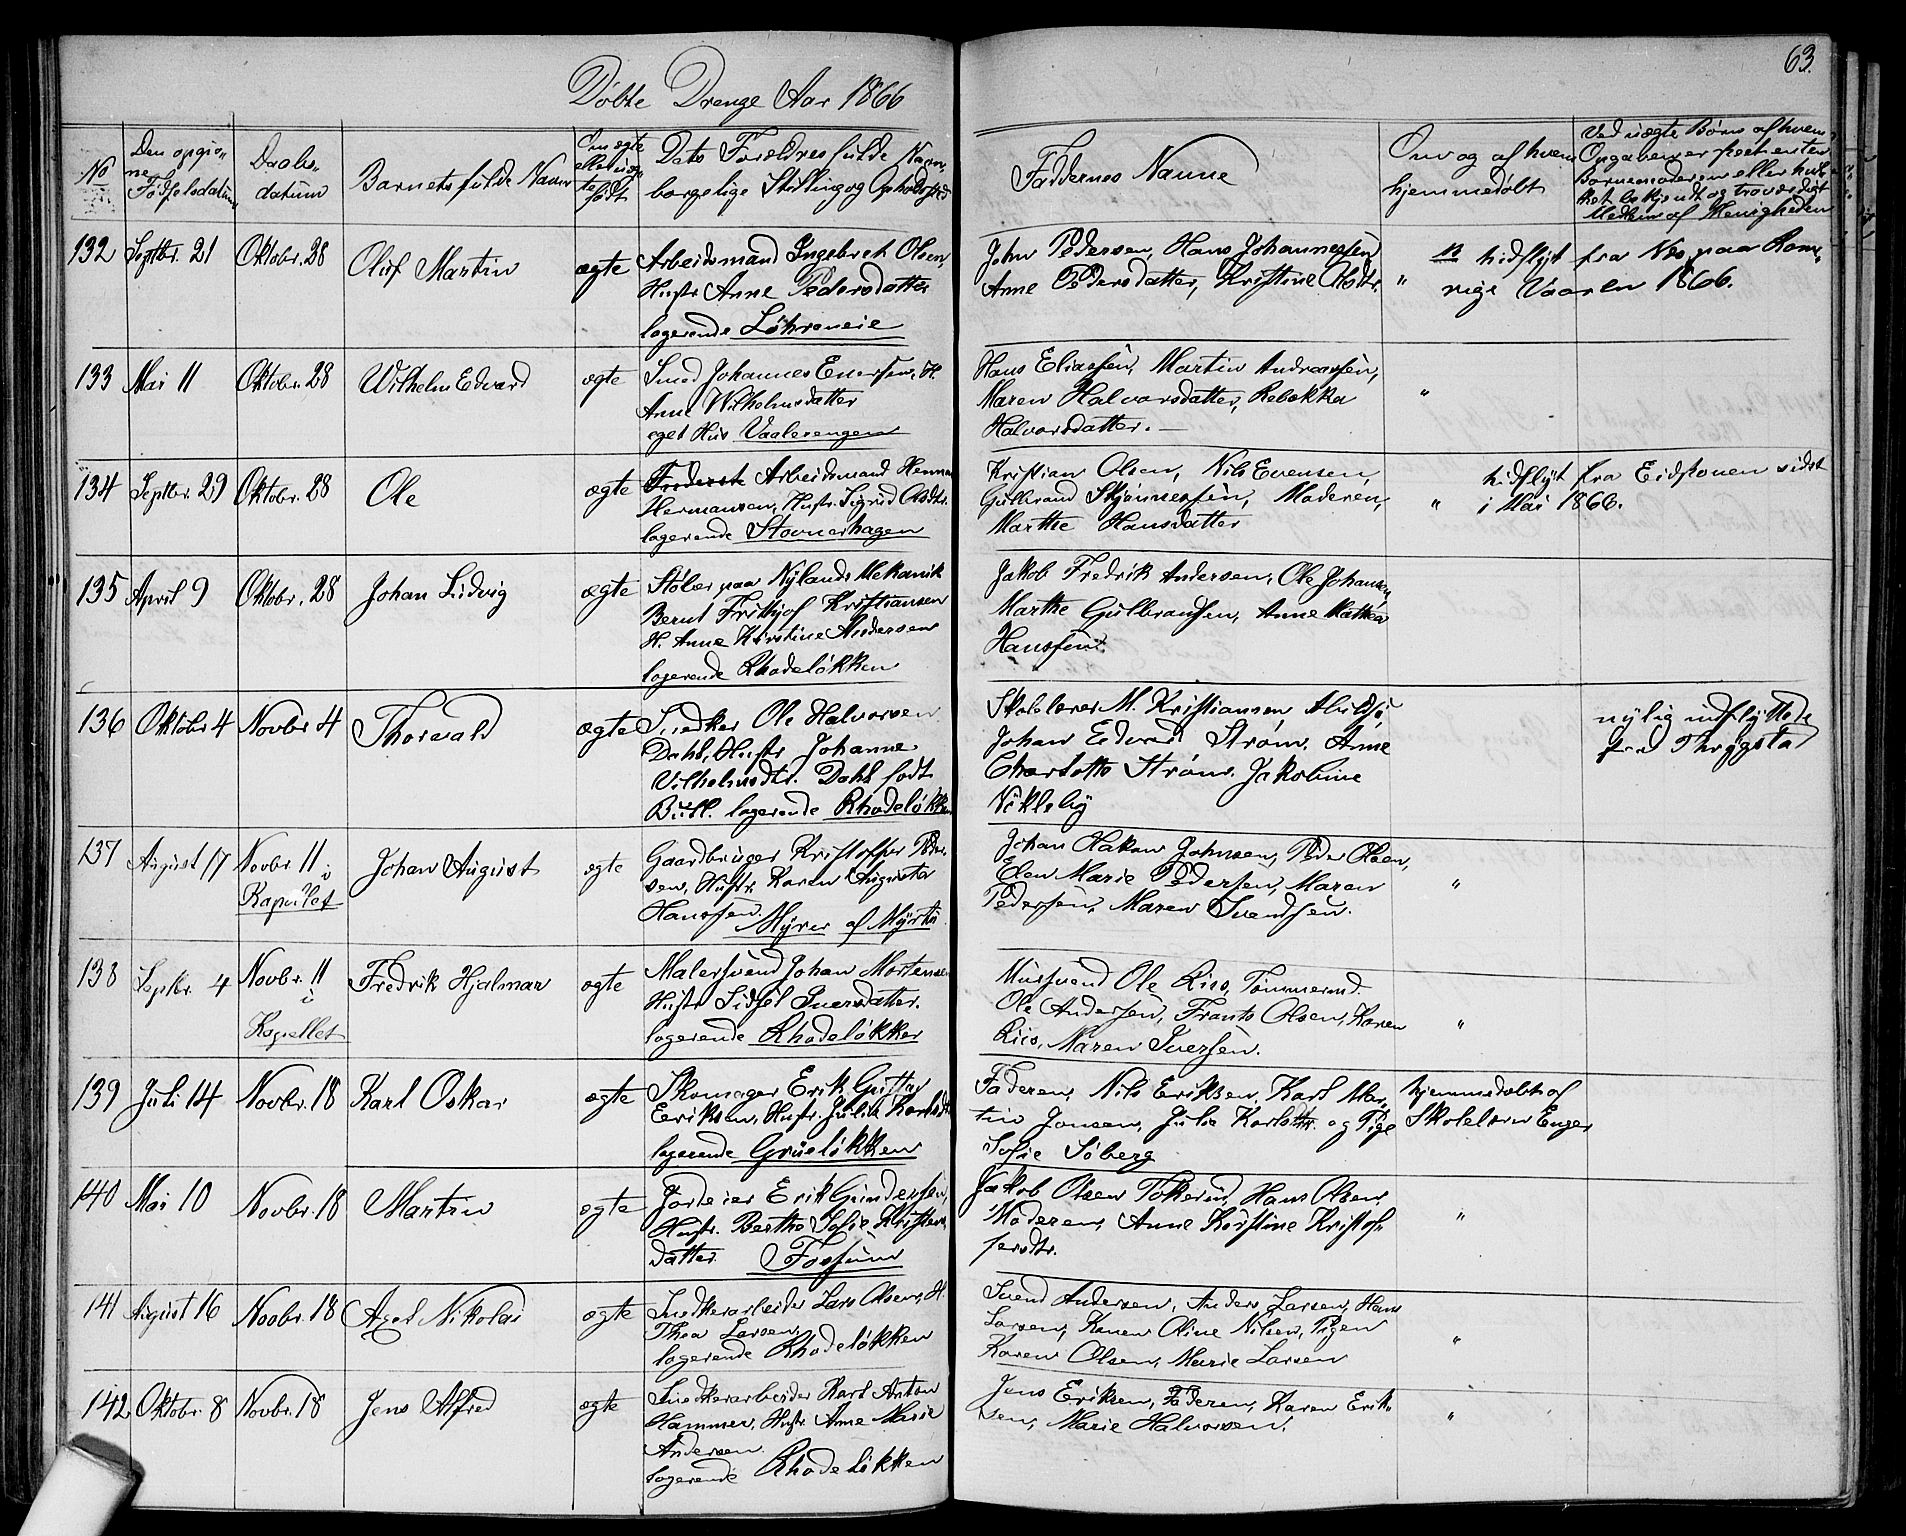 63.
Døbte Drenge Aar 1866
No
Den opgivne Fødselsdatum
Daabsdatum
Barnets fulde Navn
Om ægte eller uægte født
Dets Forældres fulde Navn, borgelige Stilling og Opholdssted
Faddernes Navne
Om og af hvem hjemmedøbt
Ved uægte Børn af hvem Opgaven er
Barnemoderen eller
bekjendt og troværdigt
Medlem af Menigheden
132 Septbr. 21 Oktobr. 28 Oluf Martin ægte Arbeidsmand Ingebret Olsen,
Hustr Anne Pedersdatter
logerende Løhreneie
John Pedersen, Hans Johannessen
Anne Pedersdatter, Kristine Olsdtr.
" hidflyt fra Næs paa Rome-
rige Vaaren 1866.
133 Mai 11 Oktobr. 28 Wilhelm Edvard ægte Smed Johannes Enersen, H.
Anne Wilhelmsdatter
eget Hus Vaalerengen
Hans Eliassen, Martin Andreassen,
Maren Halvorsdatter, Rebekka
Halvorsdatter. —
"
134 Septbr. 29 Oktobr. 28 Ole ægte Arbeidsmand Herman
Hermansen, Hustr. Sigrid Olsdtr.
logerende Stovnerhagen
Kristian Olsen, Nils Evensen,
Gulbrand Skjønnessen, Moderen,
Marthe Hansdatter
"
hidflyt fra Eidskouen sidst
i Mai 1866.
135 April 9 Oktobr. 28 Johan Ludvig ægte Støber paa Nylands Mekanik
Bernt Frithjof Kristiansen
H. Anne Kirstine Andersen
logerende Rhodeløkken
Jakob Fredrik Andersen, Ole Johansen,
Marthe Gulbransen, Anne Mathea
Hanssen.
136 Oktobr 4 Novbr 4 Thorvald ægte Snedker Ole Halvorsen
Dahl, Hustr Johanne
Vilhelmsdtr. Dahl født
Bull. logerende Rhodeløkken
Skolelærer M. Kristiansen
Johan Edvard Strøm. Anne
Charlotte Strøm. Jakobine
Nikleby
nylig indflyttede
fra Thrygstad
137 August 17 Novbr 11 i
Kapellet
Johan August ægte Gaardbruger Kristoffer Peder-
sen, Hustr. Karen Augusta
Hanssen. Myrer af
Johan Hakon Johnsen, Peder Olsen,
Elen Marie Pedersen, Maren
Pedersen, Maren Svendsen.
"
138 Septbr. 4 Novbr. 11
i
Kapellet
Fredrik Hjalmar ægte Malersvend Johan Mortensen
Hustr Sidsel Iversdatter.
logerende Rhodeløkken
Mursvend Ole Riis, Tømmermd.
Ole Andersen, Frants Olsen, Karen
Riis, Maren Iversen.
"
139 Juli 14 Novbr. 18 Karl Oskar ægte Skomager Erik Gustav
Eriksen, Hustr. Julia Karlsdtr
logerende Grüneløkken
Faderen, Nils Eriksen, Karl Mar-
tin Jonsen, Julie Karlsdtr. og Pige
Sofie Söberg
hjemmedøbt af
Skolelærer Enger
140 Mai 10 Novbr. 18 Martin ægte Jordeier Erik Gundersen,
Hustr. Berthe Sofie
datter Fossum
Jakob Olsen Tokerud, Hans Olsen,
Moderen, Anne Kirstine Kristof-
fersdtr.
"
141 August 16 Novbr. 18 Axel Nikolai ægte Snedkerarbeider Lars Olsen, H.
Thea Larsen,
logerende Rhodeløkken
Svend Andersen, Anders Larsen, Hans
Larsen, Karen Oline Nilsen, Pigen
Karen Olsen, Marie Larsen
"
142 Oktobr. 8 Novbr. 18 Jens Alfred ægte Snedkerarbeider Karl Anton
Hammer, Hustr. Anne Marie
Andersen
logerende Rhodeløkken
Jens Eriksen, Faderen, Karen Erik-
sen, Marie Halvorsen.
"